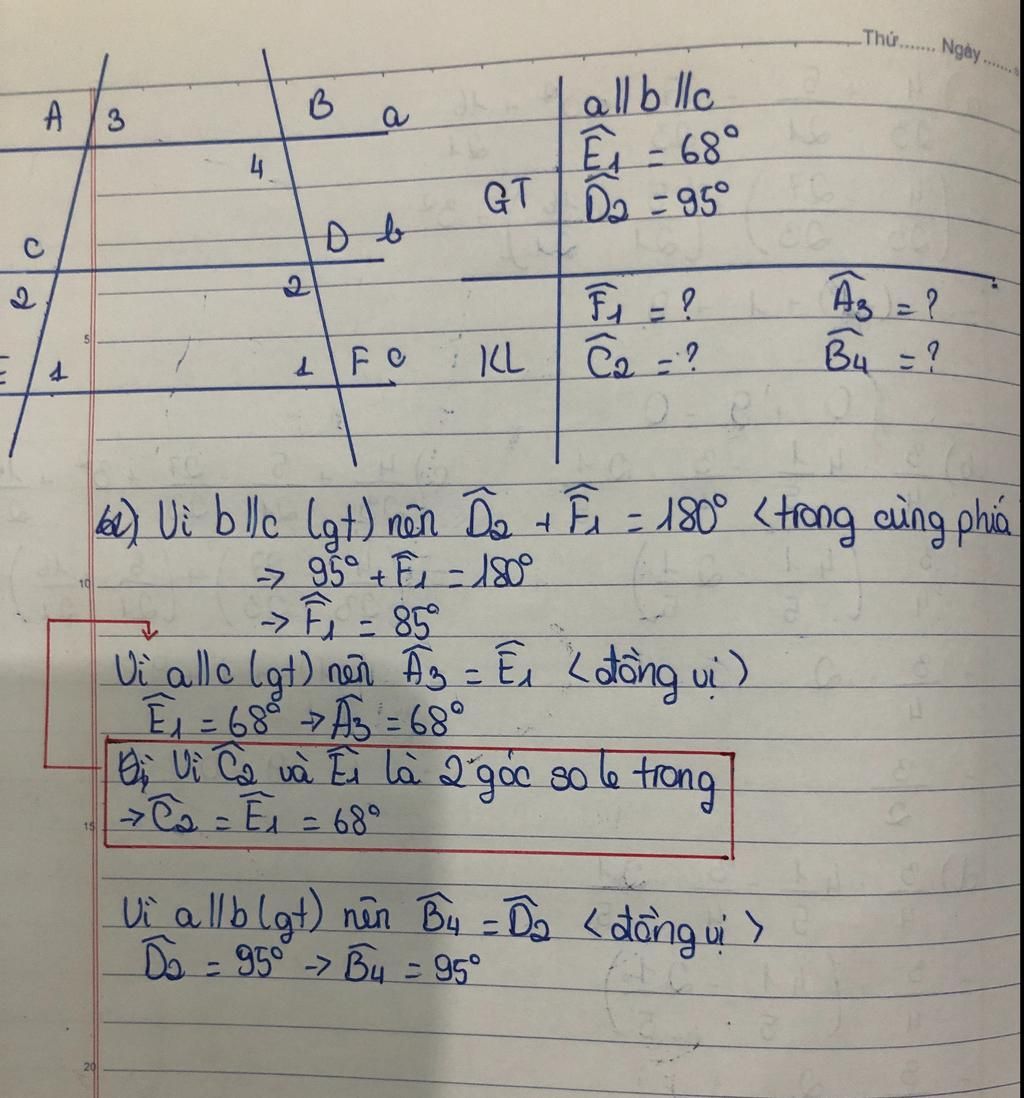 Thứ....... Ngày.......
A 3 B a
4
C D b
2 2
E 1 1 F c
GT
a // b // c
Ê1 = 68°
D̂2 = 95°
KL
F̂1 = ? Â3 = ?
Ĉ2 = ? B̂4 = ?
a) Vì b // c (gt) nên D̂2 + F̂1 = 180° <trong cùng phía
→ 95° + F̂1 = 180°
→ F̂1 = 85°
Vì a // c (gt) nên Â3 = Ê1 <đồng vị>
Ê1 = 68° → Â3 = 68°
Vì Ĉ2 và Ê1 là 2 góc so le trong
→ Ĉ2 = Ê1 = 68°
Vì a // b (gt) nên B̂4 = D̂2 <đồng vị>
D̂2 = 95° → B̂4 = 95°
5
10
15
20